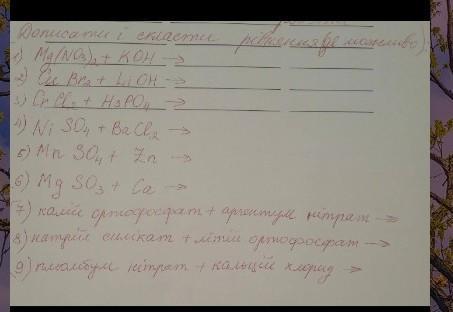 Дописати і скласти рівняння(де можливо):
1) Mg(NO3)2 + KOH →
2) Cu Br2 + LiOH →
3) CrCl2 + H3PO4 →
4) Ni SO4 + BaCl2 →
5) Mn SO4 + Zn →
6) Mg SO3 + Ca →
7) калій ортофосфат + аргентум нітрат →
8) натрій силікат + літій ортофосфат →
9) плюмбум нітрат + кальцій хлорид →